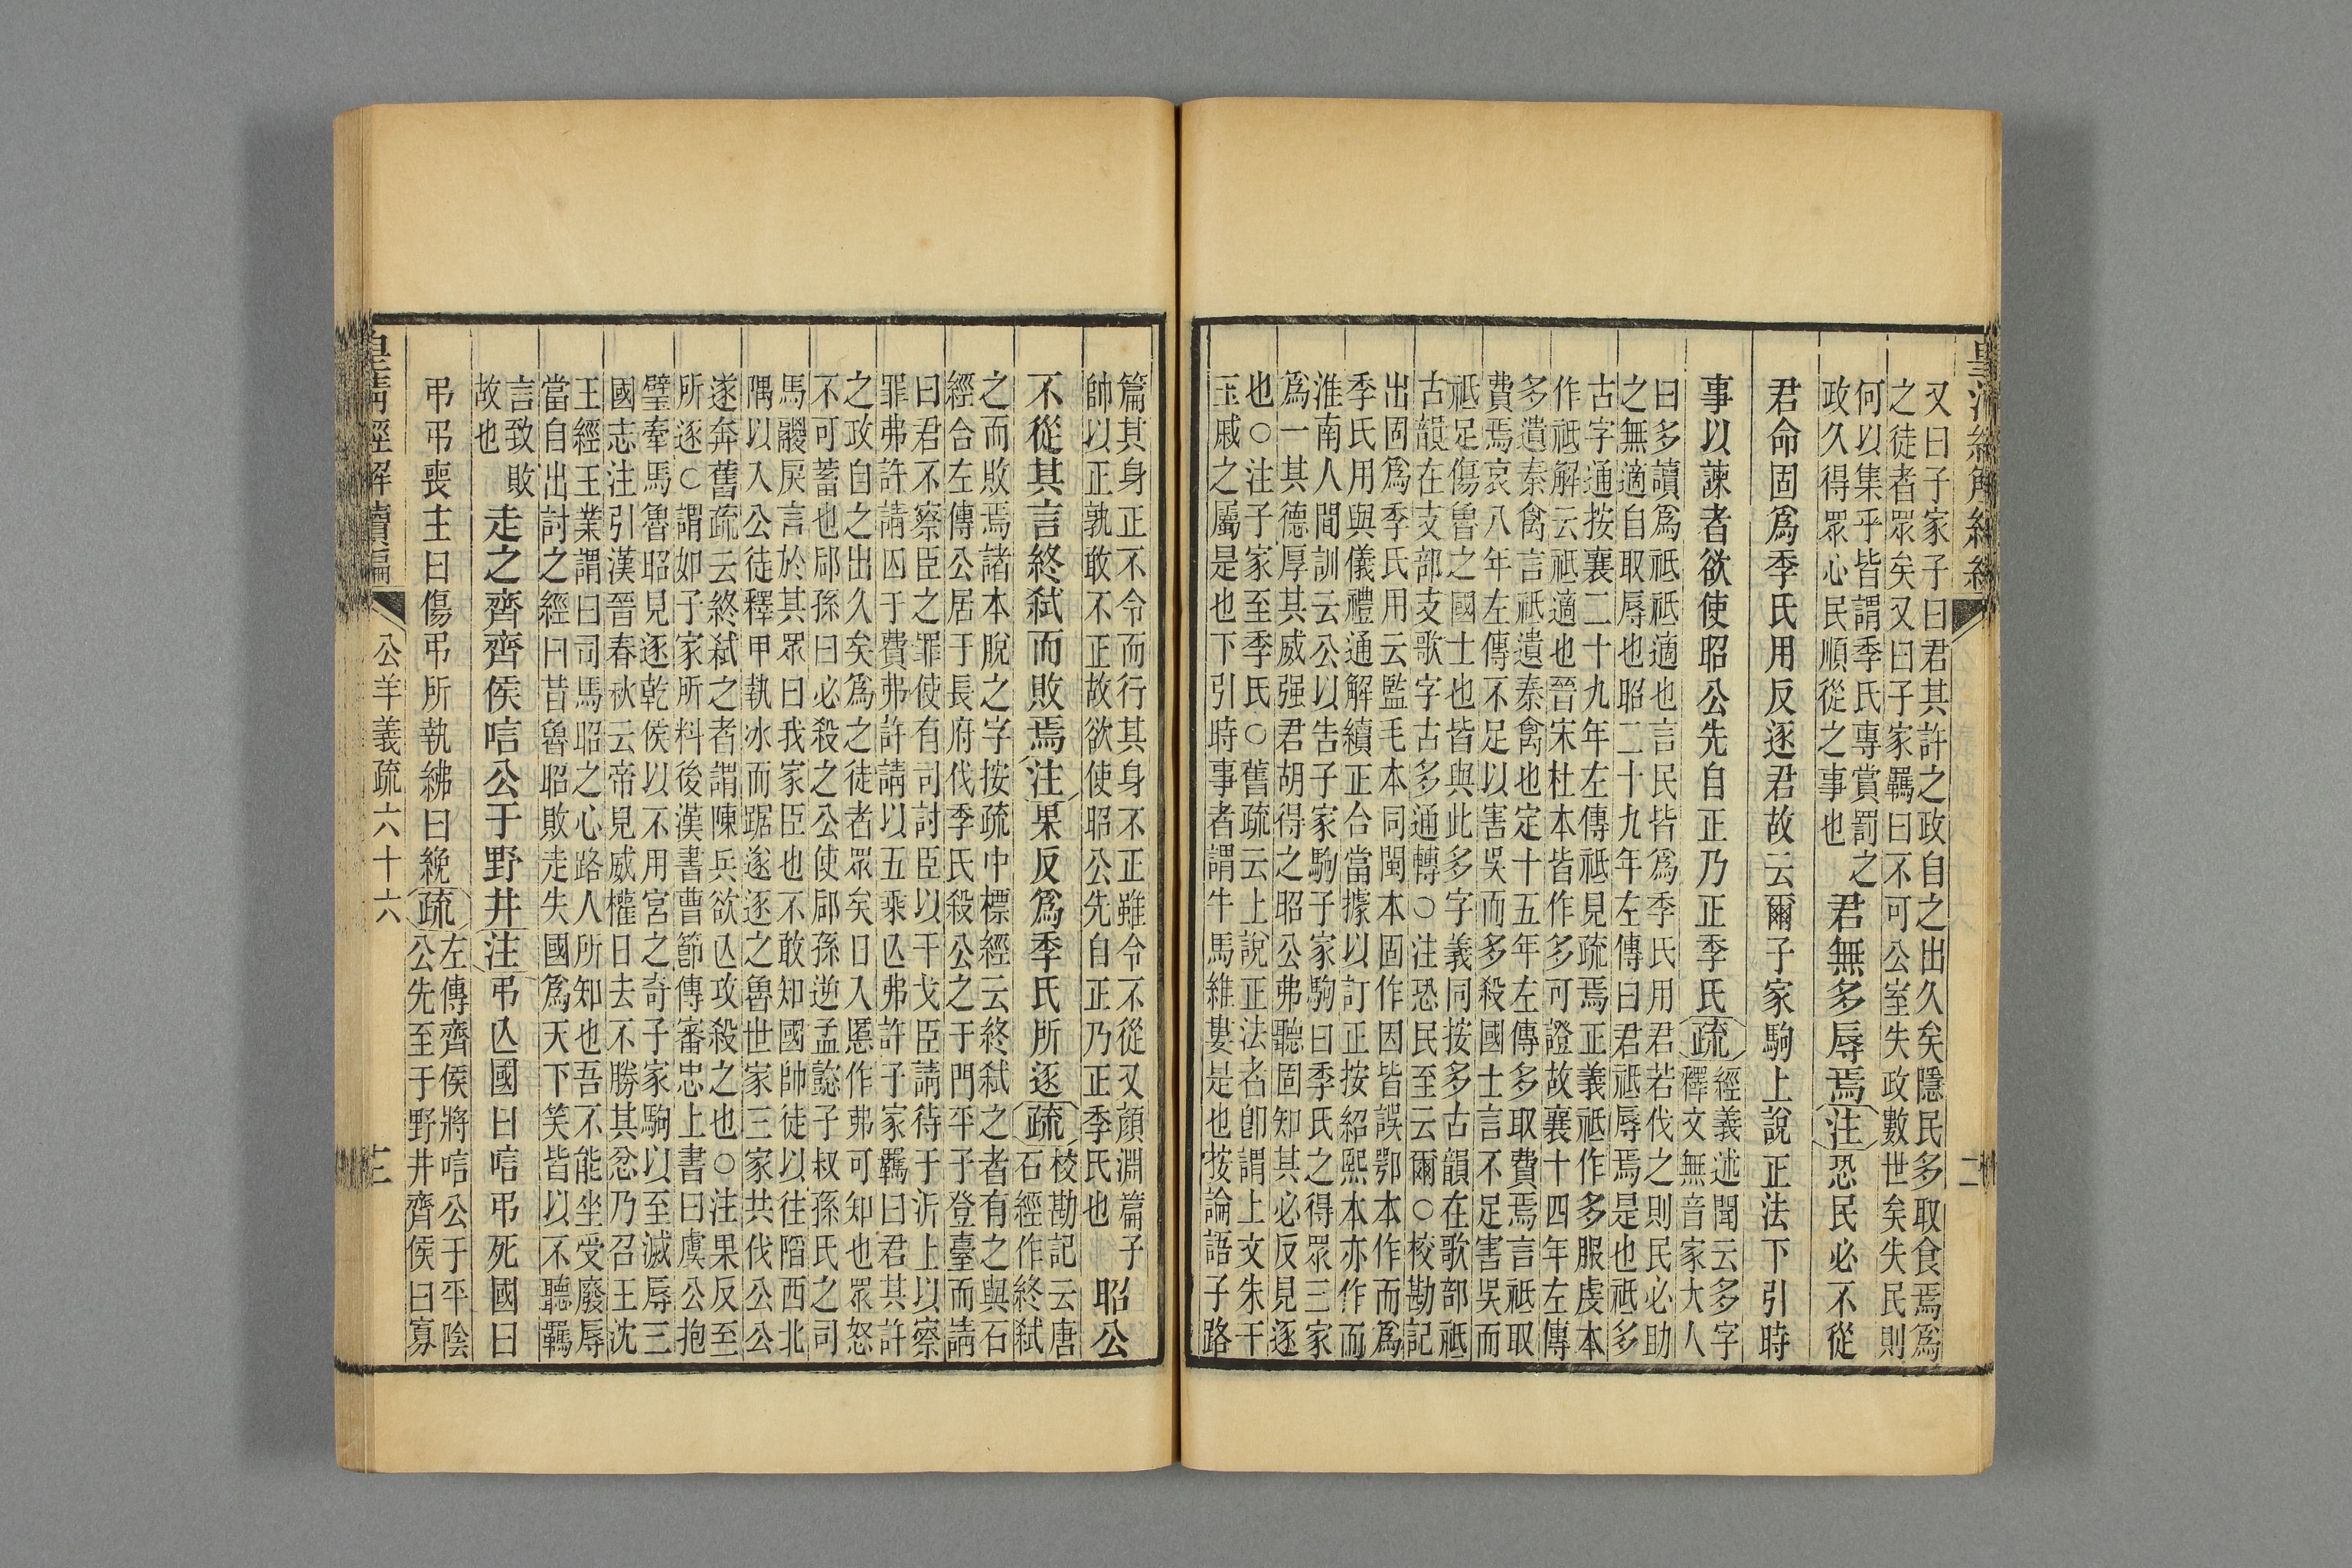 皇清經解續編
二
又曰子家子曰君其許之政自之出久矣隱民多取食焉爲
之徒者眾矣又曰子家羈曰不可公室失政數世矣失民則
何以集乎皆謂季氏專賞罰之
政久得眾心民順從之事也
君無多辱焉注恐民必不從
君命固爲季氏用反逐君故云爾子家駒上說正法下引時
事以諫者欲使昭公先自正乃正季氏疏
經義述聞云多字
釋文無音家大人
曰多讀爲祗祗適也言民皆爲季氏用君若伐之則民必助
之無適自取辱也昭二十九年左傳曰君祗辱焉是也祗多
古字通按襄二十九年左傳祗見疏焉正義祗作多服虔本
作祗解云祗適也晉宋杜本皆作多可證故襄十四年左傳
多遺秦禽言祗遺秦禽也定十五年左傳多取費焉言祗取
費焉哀八年左傳不足以害吳而多殺國士言不足害吳而
祗足傷魯之國士也皆與此多字義同按多古韻在歌部祗
古韻在支部支歌字古多通轉○注恐民至云爾○校勘記
出固爲季氏用云監毛本同閩本固作因皆誤鄂本作而爲
季氏用與儀禮通解續正合當據以訂正按紹熙本亦作而
淮南人間訓云公以告子家駒子家駒曰季氏之得眾三家
爲一其德厚其威强君胡得之昭公弗聽固知其必反見逐
也○注子家至季氏○舊疏云上說正法者卽謂上文朱干
玉戚之屬是也下引時事者謂牛馬維婁是也按論語子路
篇其身正不令而行其身不正雖令不從又顏淵篇子
帥以正孰敢不正故欲使昭公先自正乃正季氏也
昭公
不從其言終弑而敗焉注果反爲季氏所逐疏
校勘記云唐
石經作終弑
之而敗焉諸本脫之字按疏中標經云終弑之者有之與石
經合左傳公居于長府伐季氏殺公之于門平子登臺而請
曰君不察臣之罪使有司討臣以干戈臣請待于沂上以察
罪弗許請囚于費弗許請以五乘亾弗許子家羈曰君其許
之政自之出久矣爲之徒者眾矣日入慝作弗可知也眾怒
不可蓄也郈孫曰必殺之公使郈孫逆孟懿子叔孫氏之司
馬鬷戾言於其眾曰我家臣也不敢知國帥徒以往陷西北
隅以入公徒釋甲執冰而踞遂逐之魯世家三家共伐公公
遂奔舊疏云終弑之者謂陳兵欲亾攻殺之也○注果反至
所逐○謂如子家所料後漢書曹節傳審忠上書曰虞公抱
璧牽馬魯昭見逐乾侯以不用宮之奇子家駒以至滅辱三
國志注引漢晉春秋云帝見威權日去不勝其忿乃召王沈
王經王業謂曰司馬昭之心路人所知也吾不能坐受廢辱
當自出討之經曰昔魯昭敗走失國爲天下笑皆以不聽羈
言致敗
故也
走之齊齊侯唁公于野井注弔亾國曰唁弔死國曰
弔弔喪主曰傷弔所執紼曰絻疏
左傳齊侯將唁公于平陰
公先至于野井齊侯曰寡
皇清經解續編
公羊義疏六十六
三